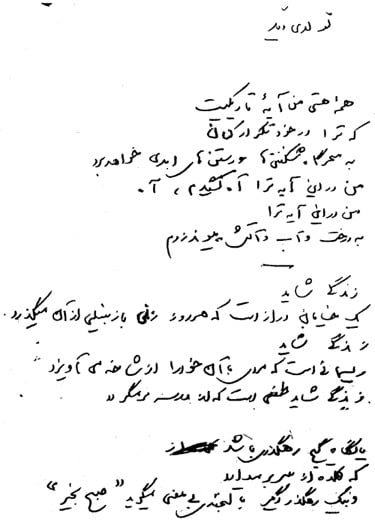 تولدی دیگر
همه هستی من آیهٔ تاریکیست
که ترا در خود تکرار کنان
به سحرگاه شکفتن‌ها و رستن‌های ابدی خواهد برد
من در این آیه ترا آه کشیدم، آه
من در این آیه ترا
به درخت و آب و آتش پیوند زدم
زندگی شاید
یک خیابان درازست که هر روز زنی با زنبیلی از آن میگذرد
زندگی شاید
ریسمانیست که مردی با آن خود را از شاخه می‌آویزد
زندگی شاید طفلی است که از مدرسه بر میگردد
یا نگاه گیج رهگذری باشد
که کلاه از سر بر میدارد
و بیک رهگذر دیگر با لبخندی بی‌معنی میگوید "صبح بخیر"